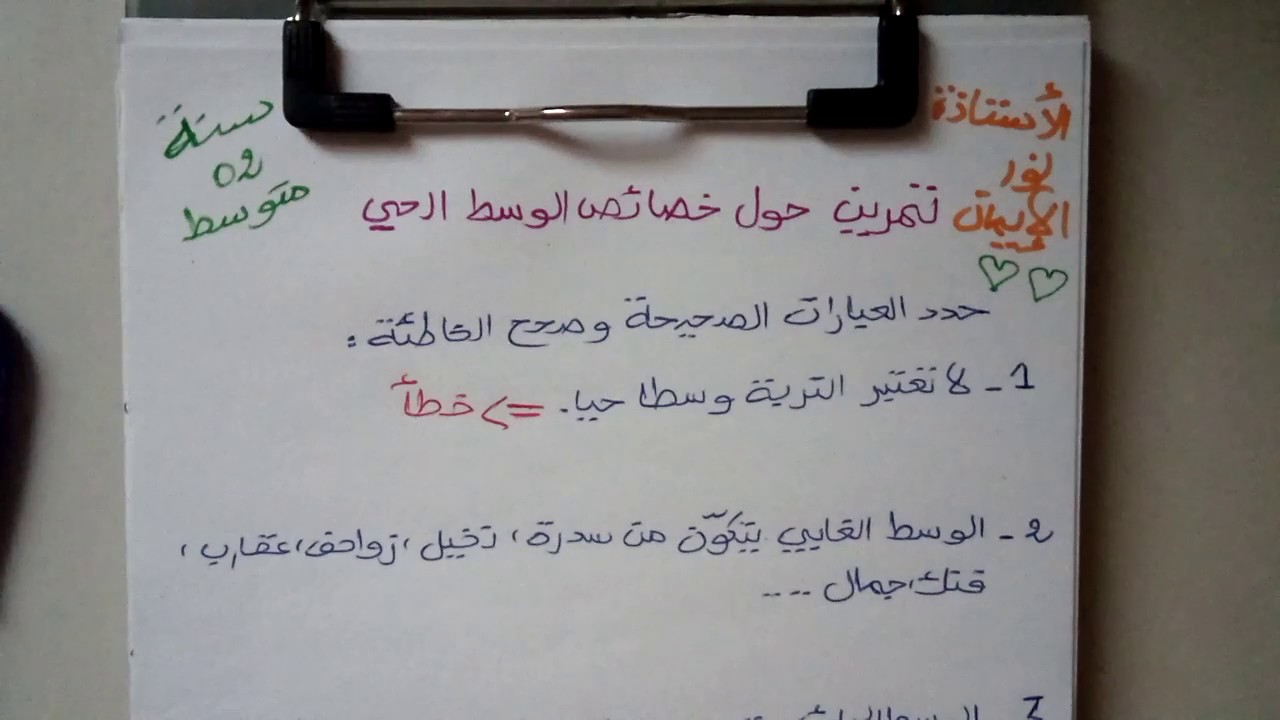 الأستاذة
نور
الإيمان
سنة
02
متوسط
تمرين حول خصائص الوسط الحي
حدد العبارات الصحيحة وصحح الخاطئة :
1 - لا تعتبر التربة وسطا حيا. => خطأ
2 - الوسط الغابي يتكوّن من سدرة، نخيل، زواحف، عقارب،
فنك، جمال ....
3 - الوسط